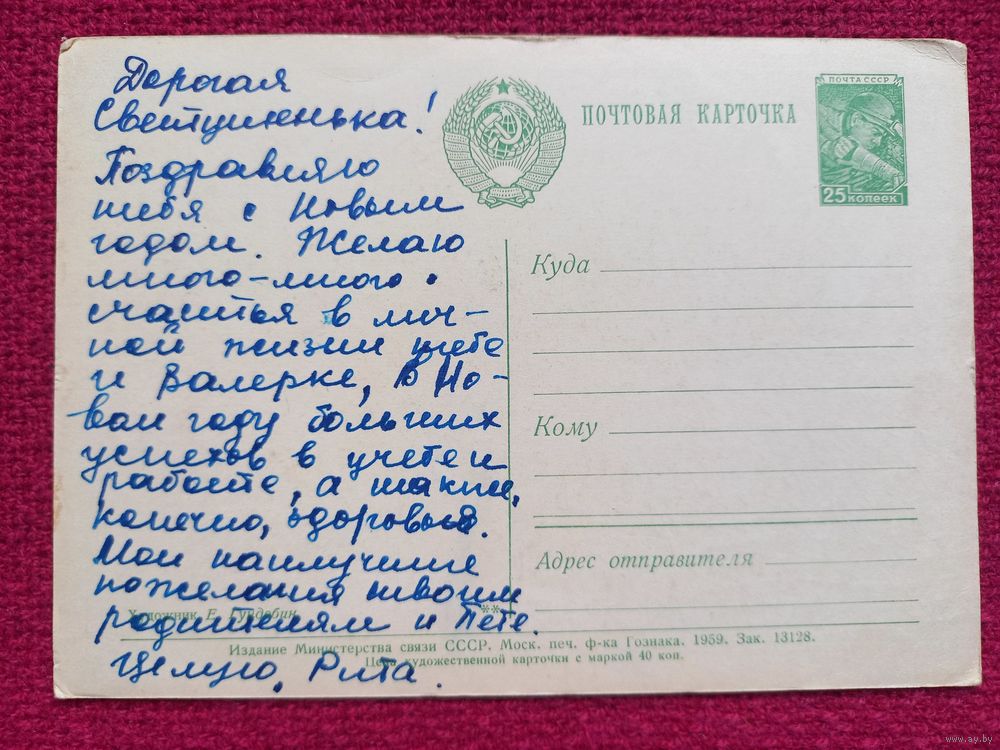 Дорогая
Светушенька!
Поздравляю
тебя с Новым
годом. Желаю
много-много
счастья в лич-
ной жизни тебе
и Валерке, в Но-
вом году больших
успехов в учебе и
работе, а также,
конечно, здоровья.
Мои наилучшие
пожелания твоим
родителям и Пете.
Целую, Рита.
ПОЧТОВАЯ КАРТОЧКА
ПОЧТА СССР
25 КОПЕЕК
Куда
Кому
Адрес отправителя
Художник Е. Гундобин
**
Издание Министерства связи СССР. Моск. печ. ф-ка Гознака. 1959. Зак. 13128.
Цена художественной карточки с маркой 40 коп.
www.ay.by